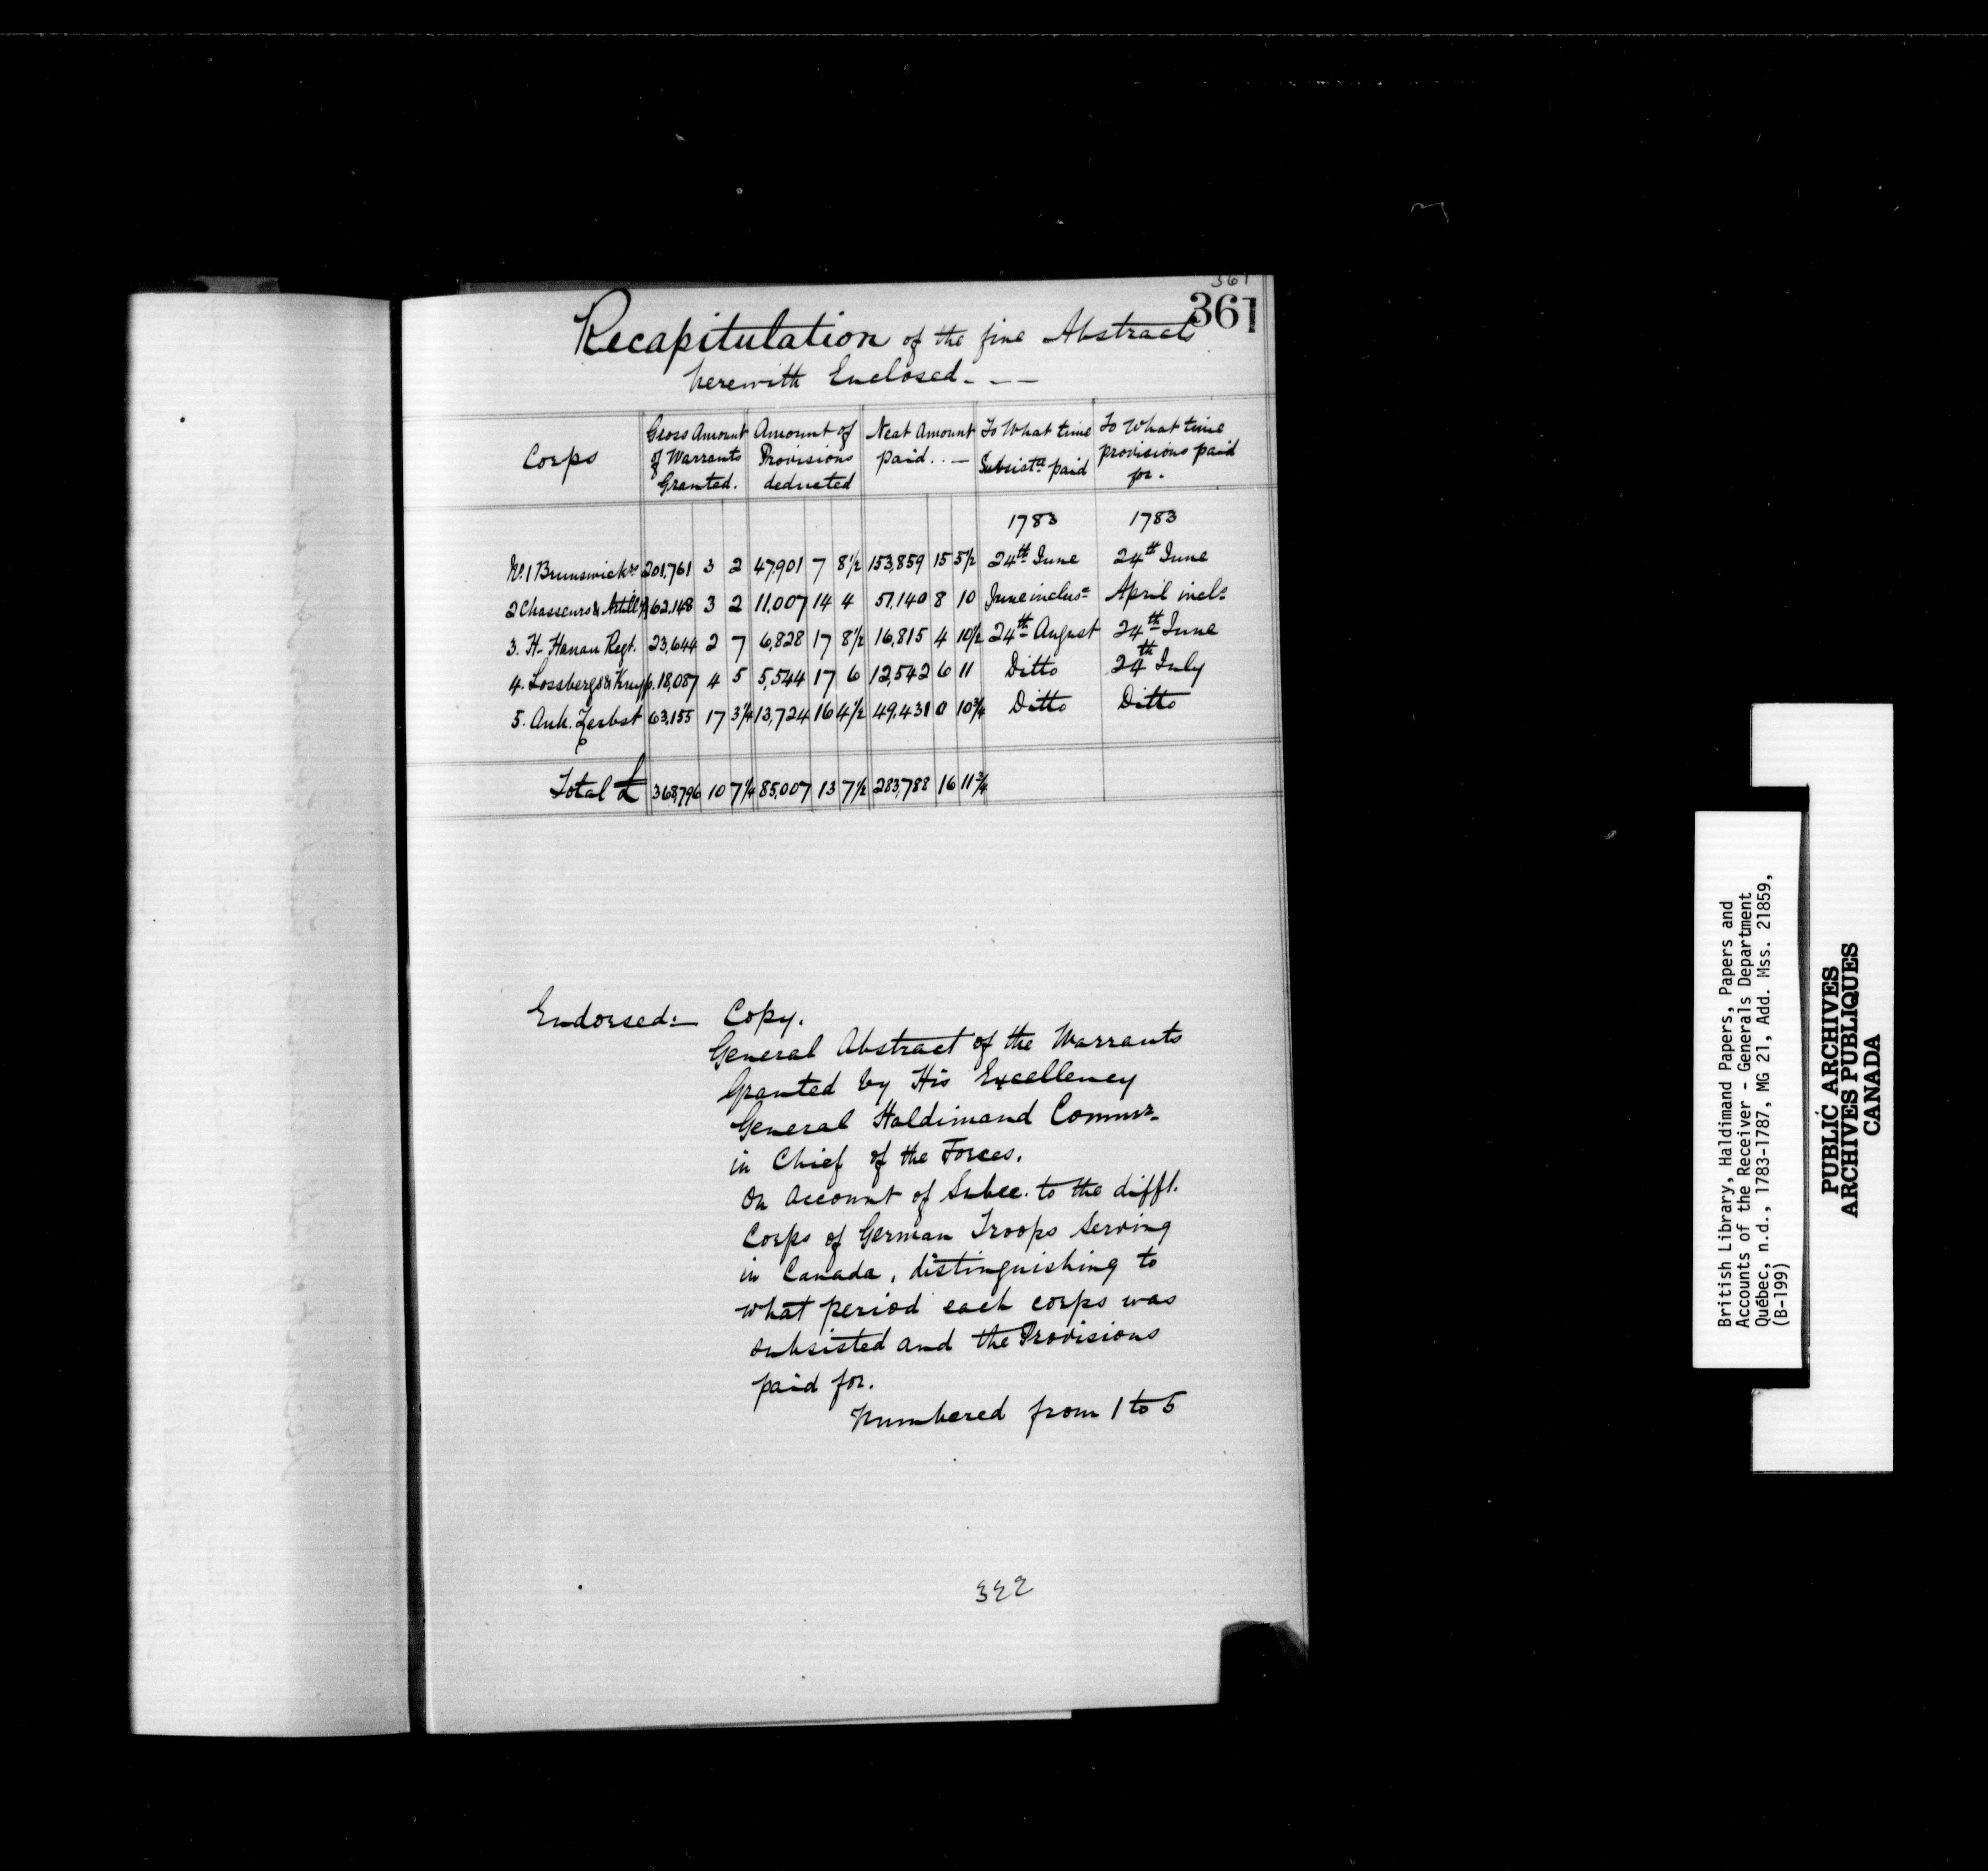 361
361
Recapitulation of the five Abstracts
herewith Enclosed. - . —
Corps | Gross Amount of Warrants Granted. | Amount of Provisions deducted | Neat Amount paid. . — | To What time Subsist.ce paid | To What time provisions paid for.
1783 | 1783
No. 1 Brunswickrs | 201,761 | 3 | 2 | 47,901 | 7 | 8½ | 153,859 | 15 | 5½ | 24th June | 24th June
2 Chasseurs & Artilly | 62,148 | 3 | 2 | 11,007 | 14 | 4 | 51,140 | 8 | 10 | June inclus.e | April incls.
3. H- Hanau Regt. | 23,644 | 2 | 7 | 6,828 | 17 | 8½ | 16,815 | 4 | 10½ | 24th August | 24th June
4. Lossbergs & Knyp. | 18,087 | 4 | 5 | 5,544 | 17 | 6 | 12,542 | 6 | 11 | Ditto | 24th July
5. Anh. Zerbst | 63,155 | 17 | 3¼ | 13,724 | 16 | 4½ | 49,431 | 0 | 10¾ | Ditto | Ditto
Total £ | 368,796 | 10 | 7¼ | 85,007 | 13 | 7½ | 283,788 | 16 | 11¾
Endorsed:— Copy.
General Abstract of the Warrants
Granted by His Excellency
General Haldimand Commr.
in Chief of the Forces.
On Account of Subce. to the difft.
Corps of German Troops Serving
in Canada, distinguishing to
what period each corps was
subsisted and the Provisions
paid for.
Numbered from 1 to 5
322
British Library, Haldimand Papers, Papers and
Accounts of the Receiver - Generals Department
Québec, n.d., 1783-1787, MG 21, Add. Mss. 21859,
(B-199)
PUBLIC ARCHIVES
ARCHIVES PUBLIQUES
CANADA